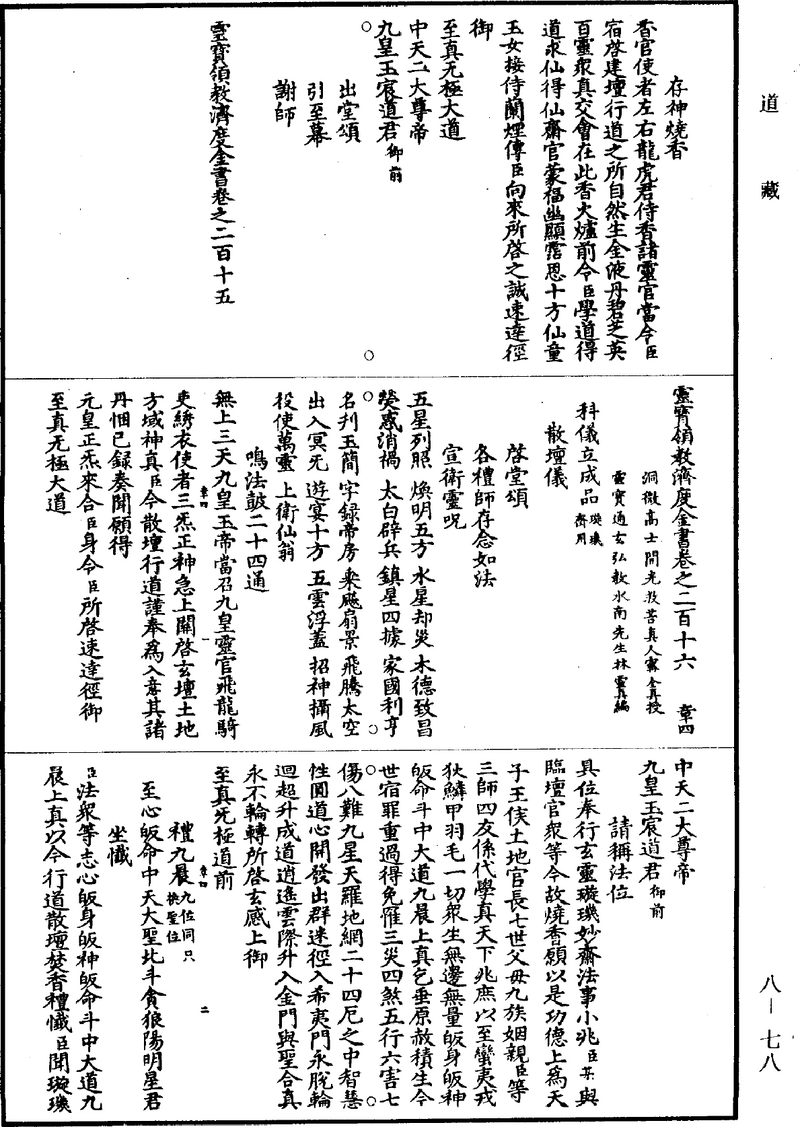 道藏
存神燒香
香官使者左右龍虎君侍香諸靈官當令臣
宿啓建壇行道之所自然生金液丹碧芝英
百靈衆真交會在此香火爐前令臣學道得
道求仙得仙齋官蒙福幽顯霑恩十方仙童
玉女接侍蘭煙傳臣向來所啓之誠速達徑
御
至真无極大道
中天二大尊帝
九皇玉宸道君御前
出堂頌
引至幕
謝師
靈寶領教濟度金書卷之二百十五
靈寶領教濟度金書卷之二百十六 章四
洞微高士開光救苦真人甯全真授
靈寶通玄弘教水南先生林靈真編
科儀立成品璇璣齋用
散壇儀
啓堂頌
各禮師存念如法
宣衛靈呪
五星列照 煥明五方 水星却災 木德致昌
熒惑消禍 太白辟兵 鎮星四據 家國利亨
名刋玉簡 字錄帝房 乘飈扇景 飛騰太空
出入冥无 遊宴十方 五雲浮蓋 招神攝風
役使萬靈 上衛仙翁
鳴法鼓二十四通
無上三天九皇玉帝當召九皇靈官飛龍騎
吏綉衣使者三炁正神急上關啓玄壇土地
方域神真臣今散壇行道謹奉爲入意其諸
丹悃已錄奏聞願得
元皇正炁來合臣身令臣所啓速達徑御
至真无極大道
章四 一
中天二大尊帝
九皇玉宸道君御前
請稱法位
具位奉行玄靈璇璣妙齋法事小兆臣某與
臨壇官衆等今故燒香願以是功德上爲天
子王侯土地官長七世父母九族姻親臣等
三師四友係代學真天下兆庶以至蠻夷戎
狄鱗甲羽毛一切衆生無邊無量皈身皈神
皈命斗中大道九晨上真乞垂原赦積生今
世宿罪重過得免罹三災四煞五行六害七
傷八難九星天羅地網二十四厄之中智慧
性圓道心開發出群迷徑入希夷門永脫輪
迴超升成道逍遙雲際升入金門與聖合真
永不輪轉所啓玄感上御
至真无極道前
禮九晨九位同只換聖位
至心皈命中天大聖北斗貪狼陽明星君
坐懺
臣法衆等志心皈身皈神皈命斗中大道九
晨上真以今行道散壇焚香禮懺臣聞璇璣
章四 二
八—七八